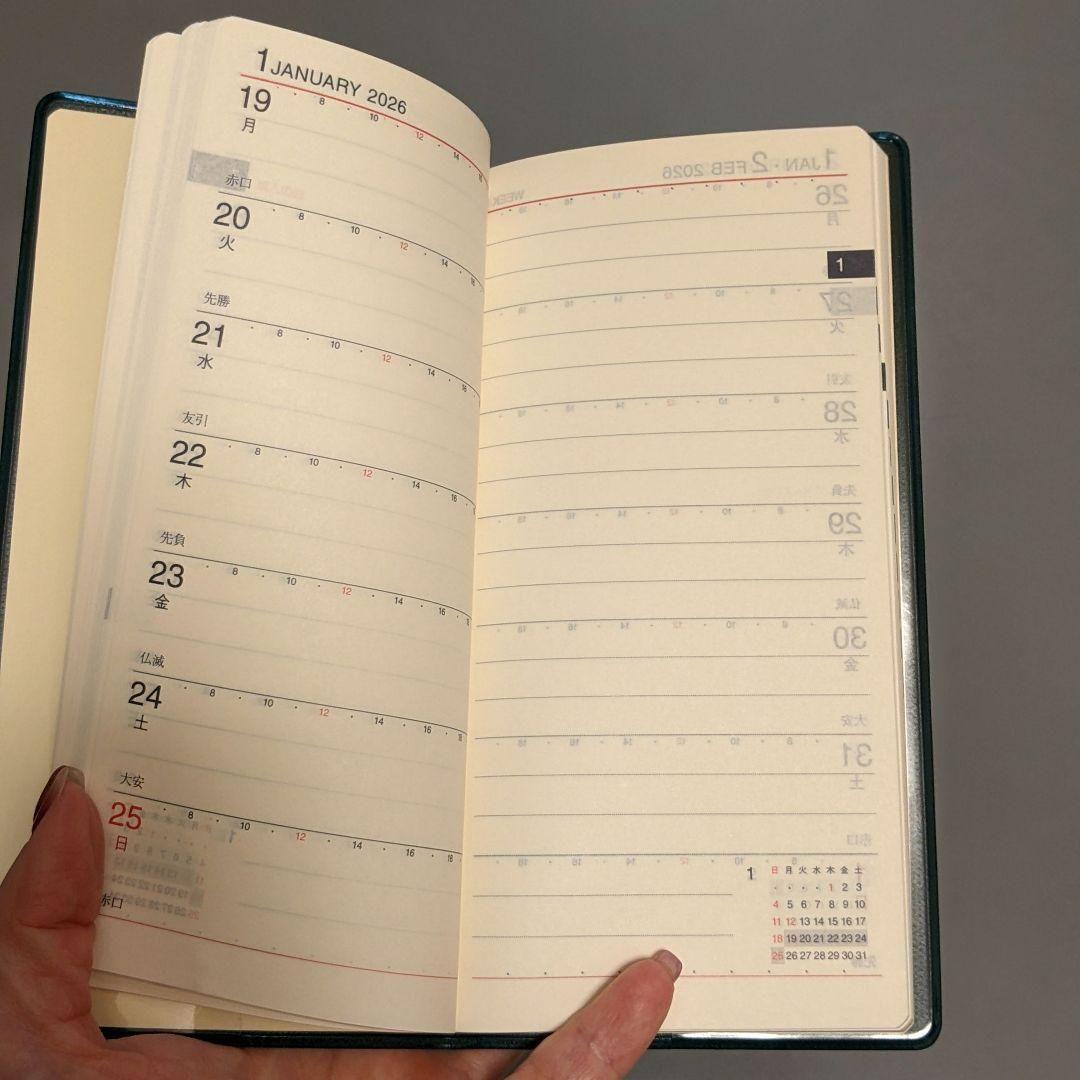 1 JANUARY 2026
19 8 10 12 14 16
月
赤口
20 8 10 12 14 16
火
先勝
21 8 10 12 14 16
水
友引
22 8 10 12 14 16
木
先負
23 8 10 12 14 16
金
仏滅
24 8 10 12 14 16 18
土
大安
25 8 10 12 14 16 18
日
赤口
1
1 日 月 火 水 木 金 土
1 2 3
4 5 6 7 8 9 10
11 12 13 14 15 16 17
18 19 20 21 22 23 24
25 26 27 28 29 30 31